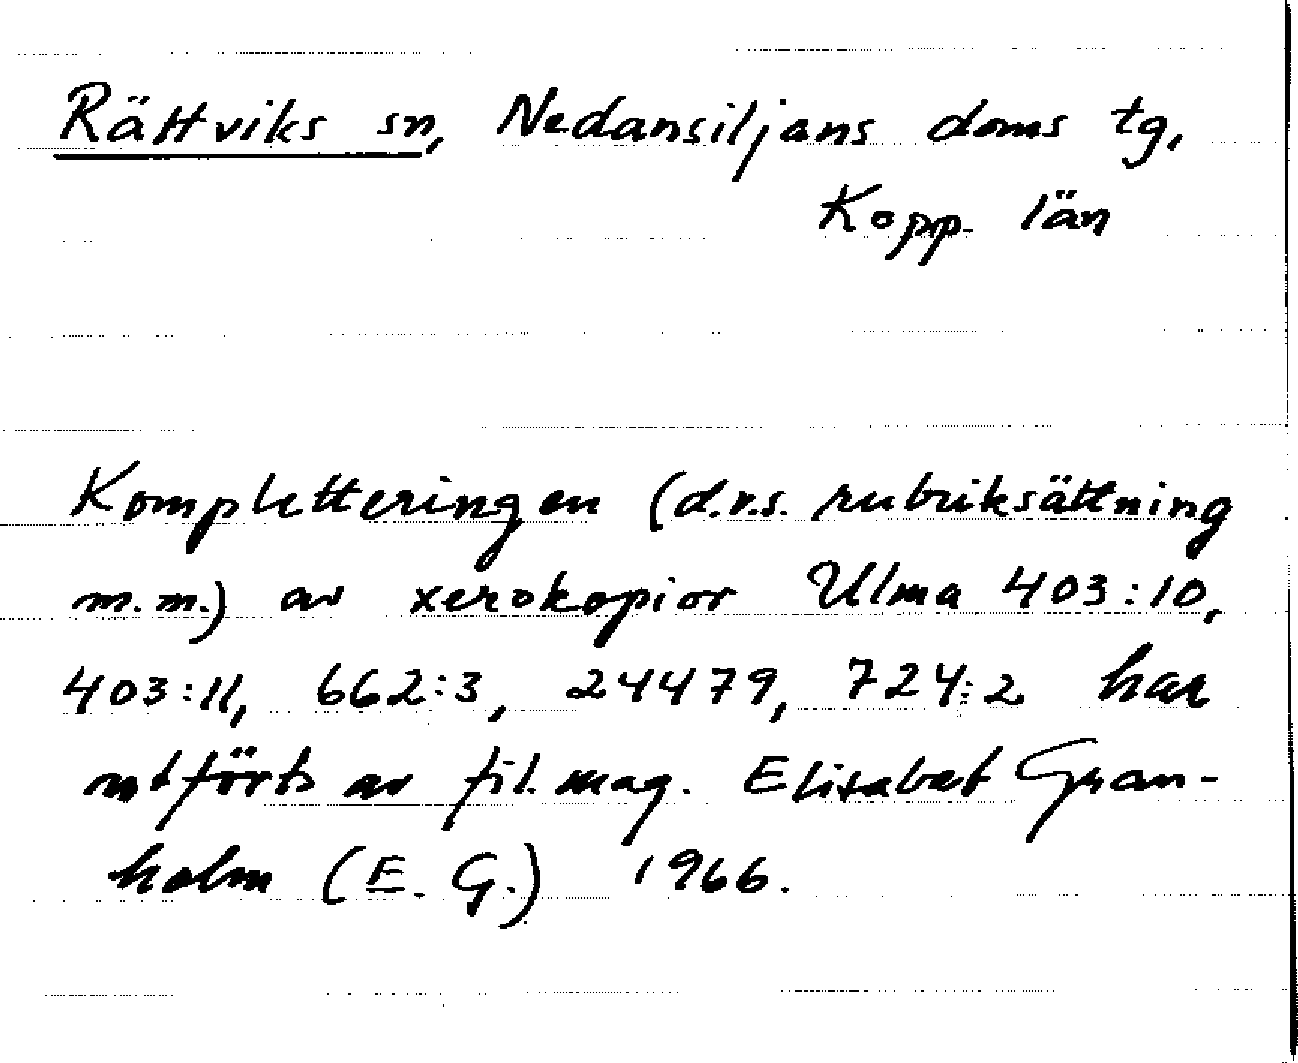 Rättviks sn, Nedansiljans doms tg,
Kopp. län
Kompletteringen (d.v.s. rubriksättning
m.m.) av xerokopior Ulma 403:10,
403:11, 662:3, 24479, 724:2 har
utförts av fil. mag. Elisabet Gran-
holm (E. G.) 1966.